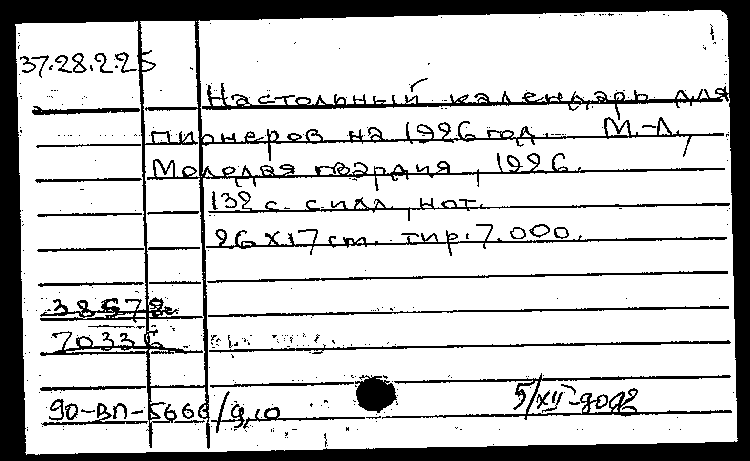 37.28.2.25
Настольный календарь для
пионеров на 1926 год. М.-Л.,
Молодая гвардия, 1926.
132 с. с илл., нот.
26 х 17 cm. тир. 7.000.
38578
70336
90-ВП-5666/9,10